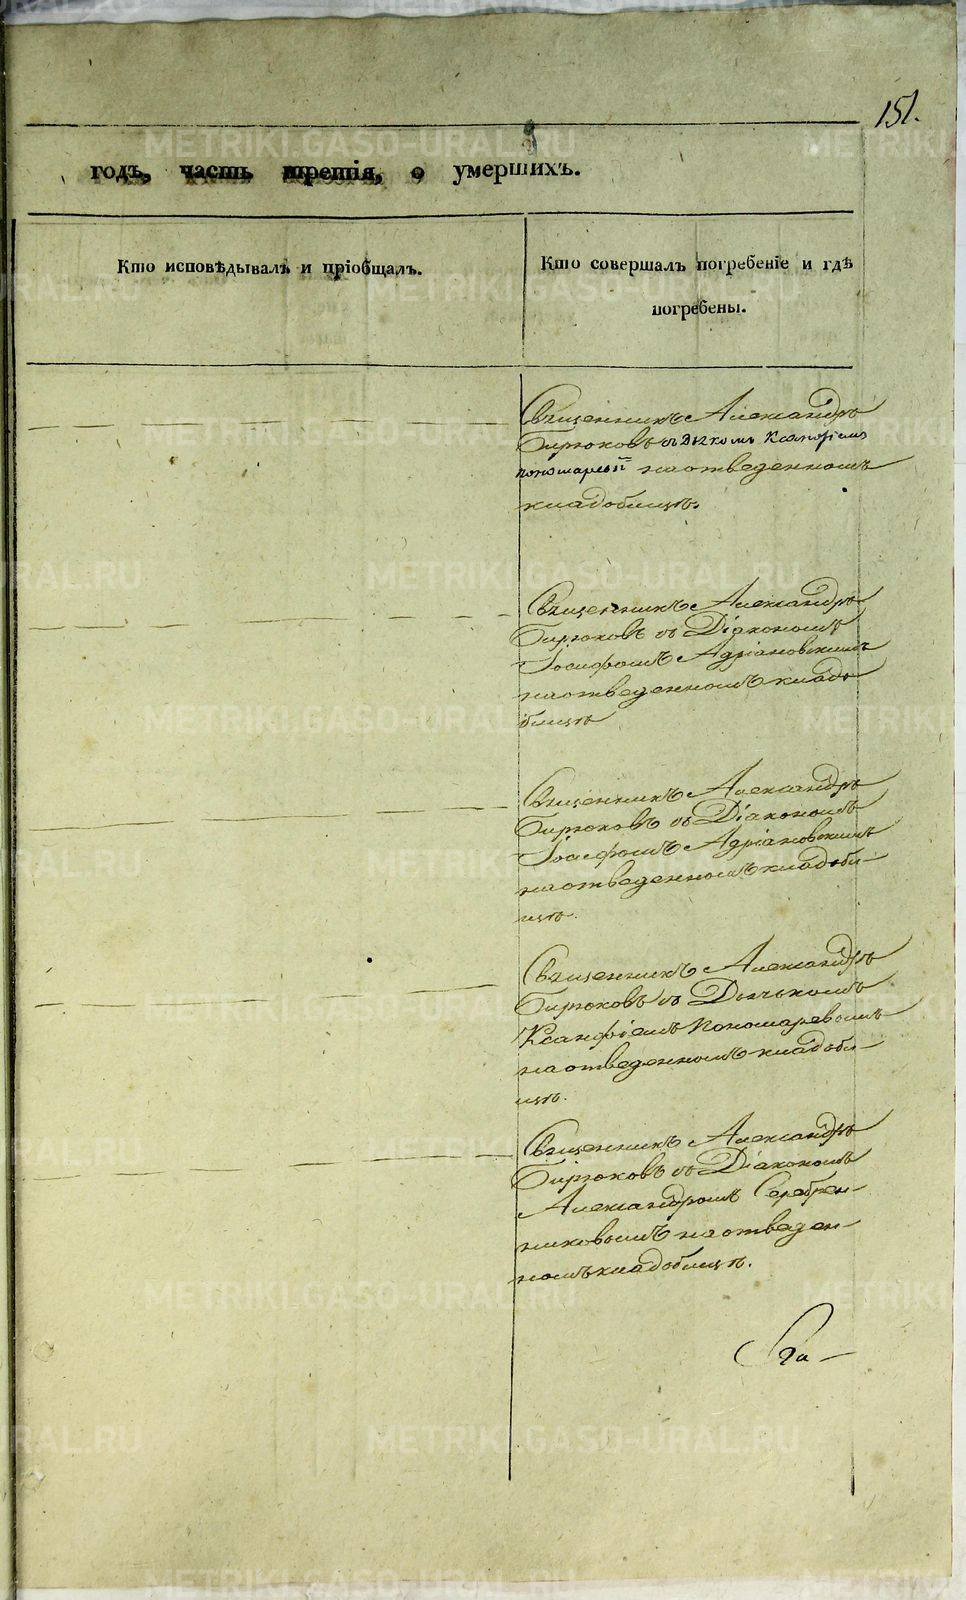 151.
годъ, часть третія, о умершихъ.
Кто исповѣдывалъ и пріобщалъ.
Кто совершалъ погребеніе и гдѣ
погребены.
Священникъ Александръ
Бирюковъ съ Дьячкомъ Ксанфіемъ
на отведенномъ
кладбищѣ.
Священникъ Александръ
Бирюковъ съ Діякономъ
Іосифомъ Адріановскимъ
на отведенномъ кладб
бищѣ
Священникъ Александръ
Бирюковъ съ Діакономъ
Іосифомъ Адріановскимъ
на отведенномъ кладби-
щѣ.
Священникъ Александръ
Бирюковъ съ Дьячкомъ
Ксанфіемъ Пономаревымъ
на отведенномъ кладби-
щѣ.
Священникъ Александръ
Бирюковъ съ Діакономъ
Александромъ Серебрен-
никовымъ на отведен-
номъ кладбищѣ.
METRIKI.GASO-URAL.RU